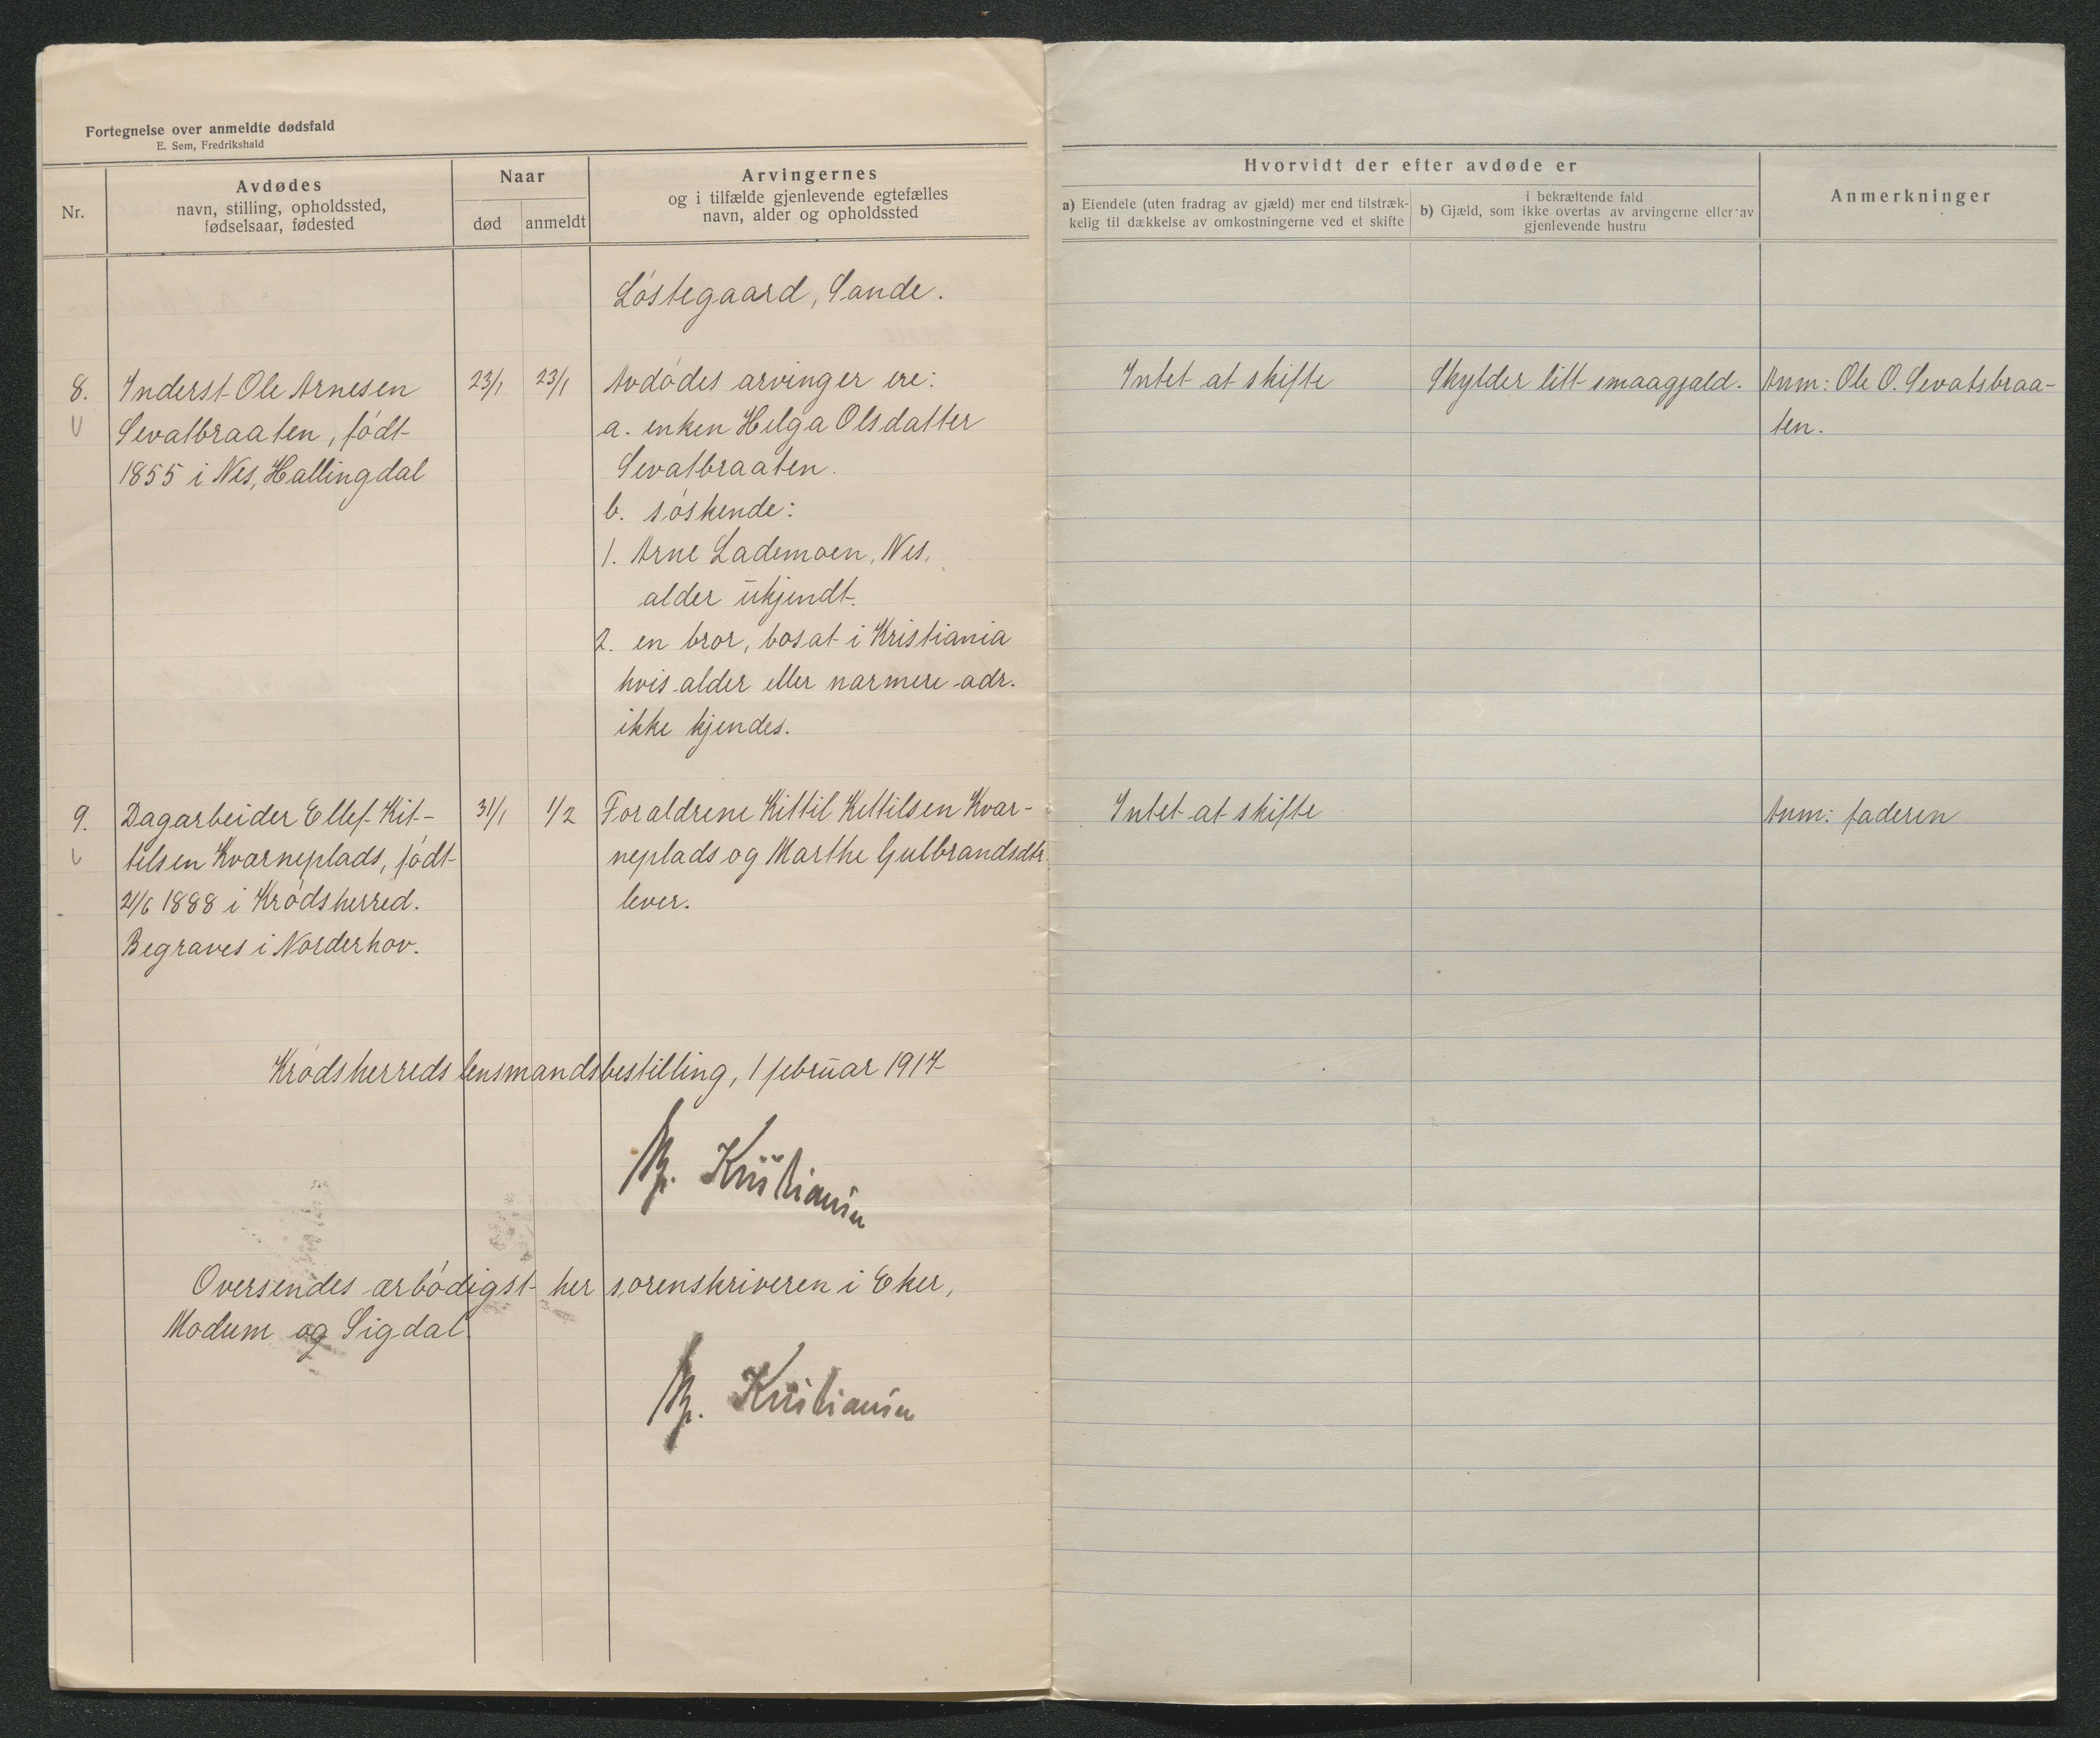 Fortegnelse over anmeldte dødsfald
E. Sem, Fredrikshald
Nr.
Avdødes
navn, stilling, opholdssted,
fødselsaar, fødested
Naar
død
anmeldt
Arvingernes
og i tilfælde gjenlevende egtefælles
navn, alder og opholdssted
Hvorvidt der efter avdøde er
a) Eiendele (uten fradrag av gjæld) mer end tilstræk-
kelig til dækkelse av omkostningerne ved et skifte
i bekræftende fald
b) Gjæld, som ikke overtas av arvingerne eller av
gjenlevende hustru
Anmerkninger
Løstegaard, Sande.
8.
Inderst Ole Arnesen
Sevatbraaten, født
1855 i Nes, Hallingdal
23/1
23/1
Avdødes arvinger ere:
a. enken Helga Olsdatter
Sevatbraaten.
b. søskende:
1. Arne Lademoen, Nes,
alder ukjendt.
2. en bror, bosat i Kristiania
hvis alder eller nærmere adr.
ikke kjendes.
Intet at skifte
Skylder litt smaagjæld.
Anm: Ole O. Sevatsbraa-
ten.
9.
Dagarbeider Ellef Kit-
telsen Kvarneplads, født
21/6 1888 i Krødsherred.
Begraves i Norderhov.
31/1
1/2
Forældrene Kittil Kittilsen Kvar-
neplads og Marthe Gulbrandsdtr
lever.
Intet at skifte
Anm: faderen
Krødsherreds lensmandsbestilling, 1 februar 1917
Kristiansen
Oversendes ærbødigst hr sorenskriveren i Eker,
Modum og Sigdal
Kristiansen